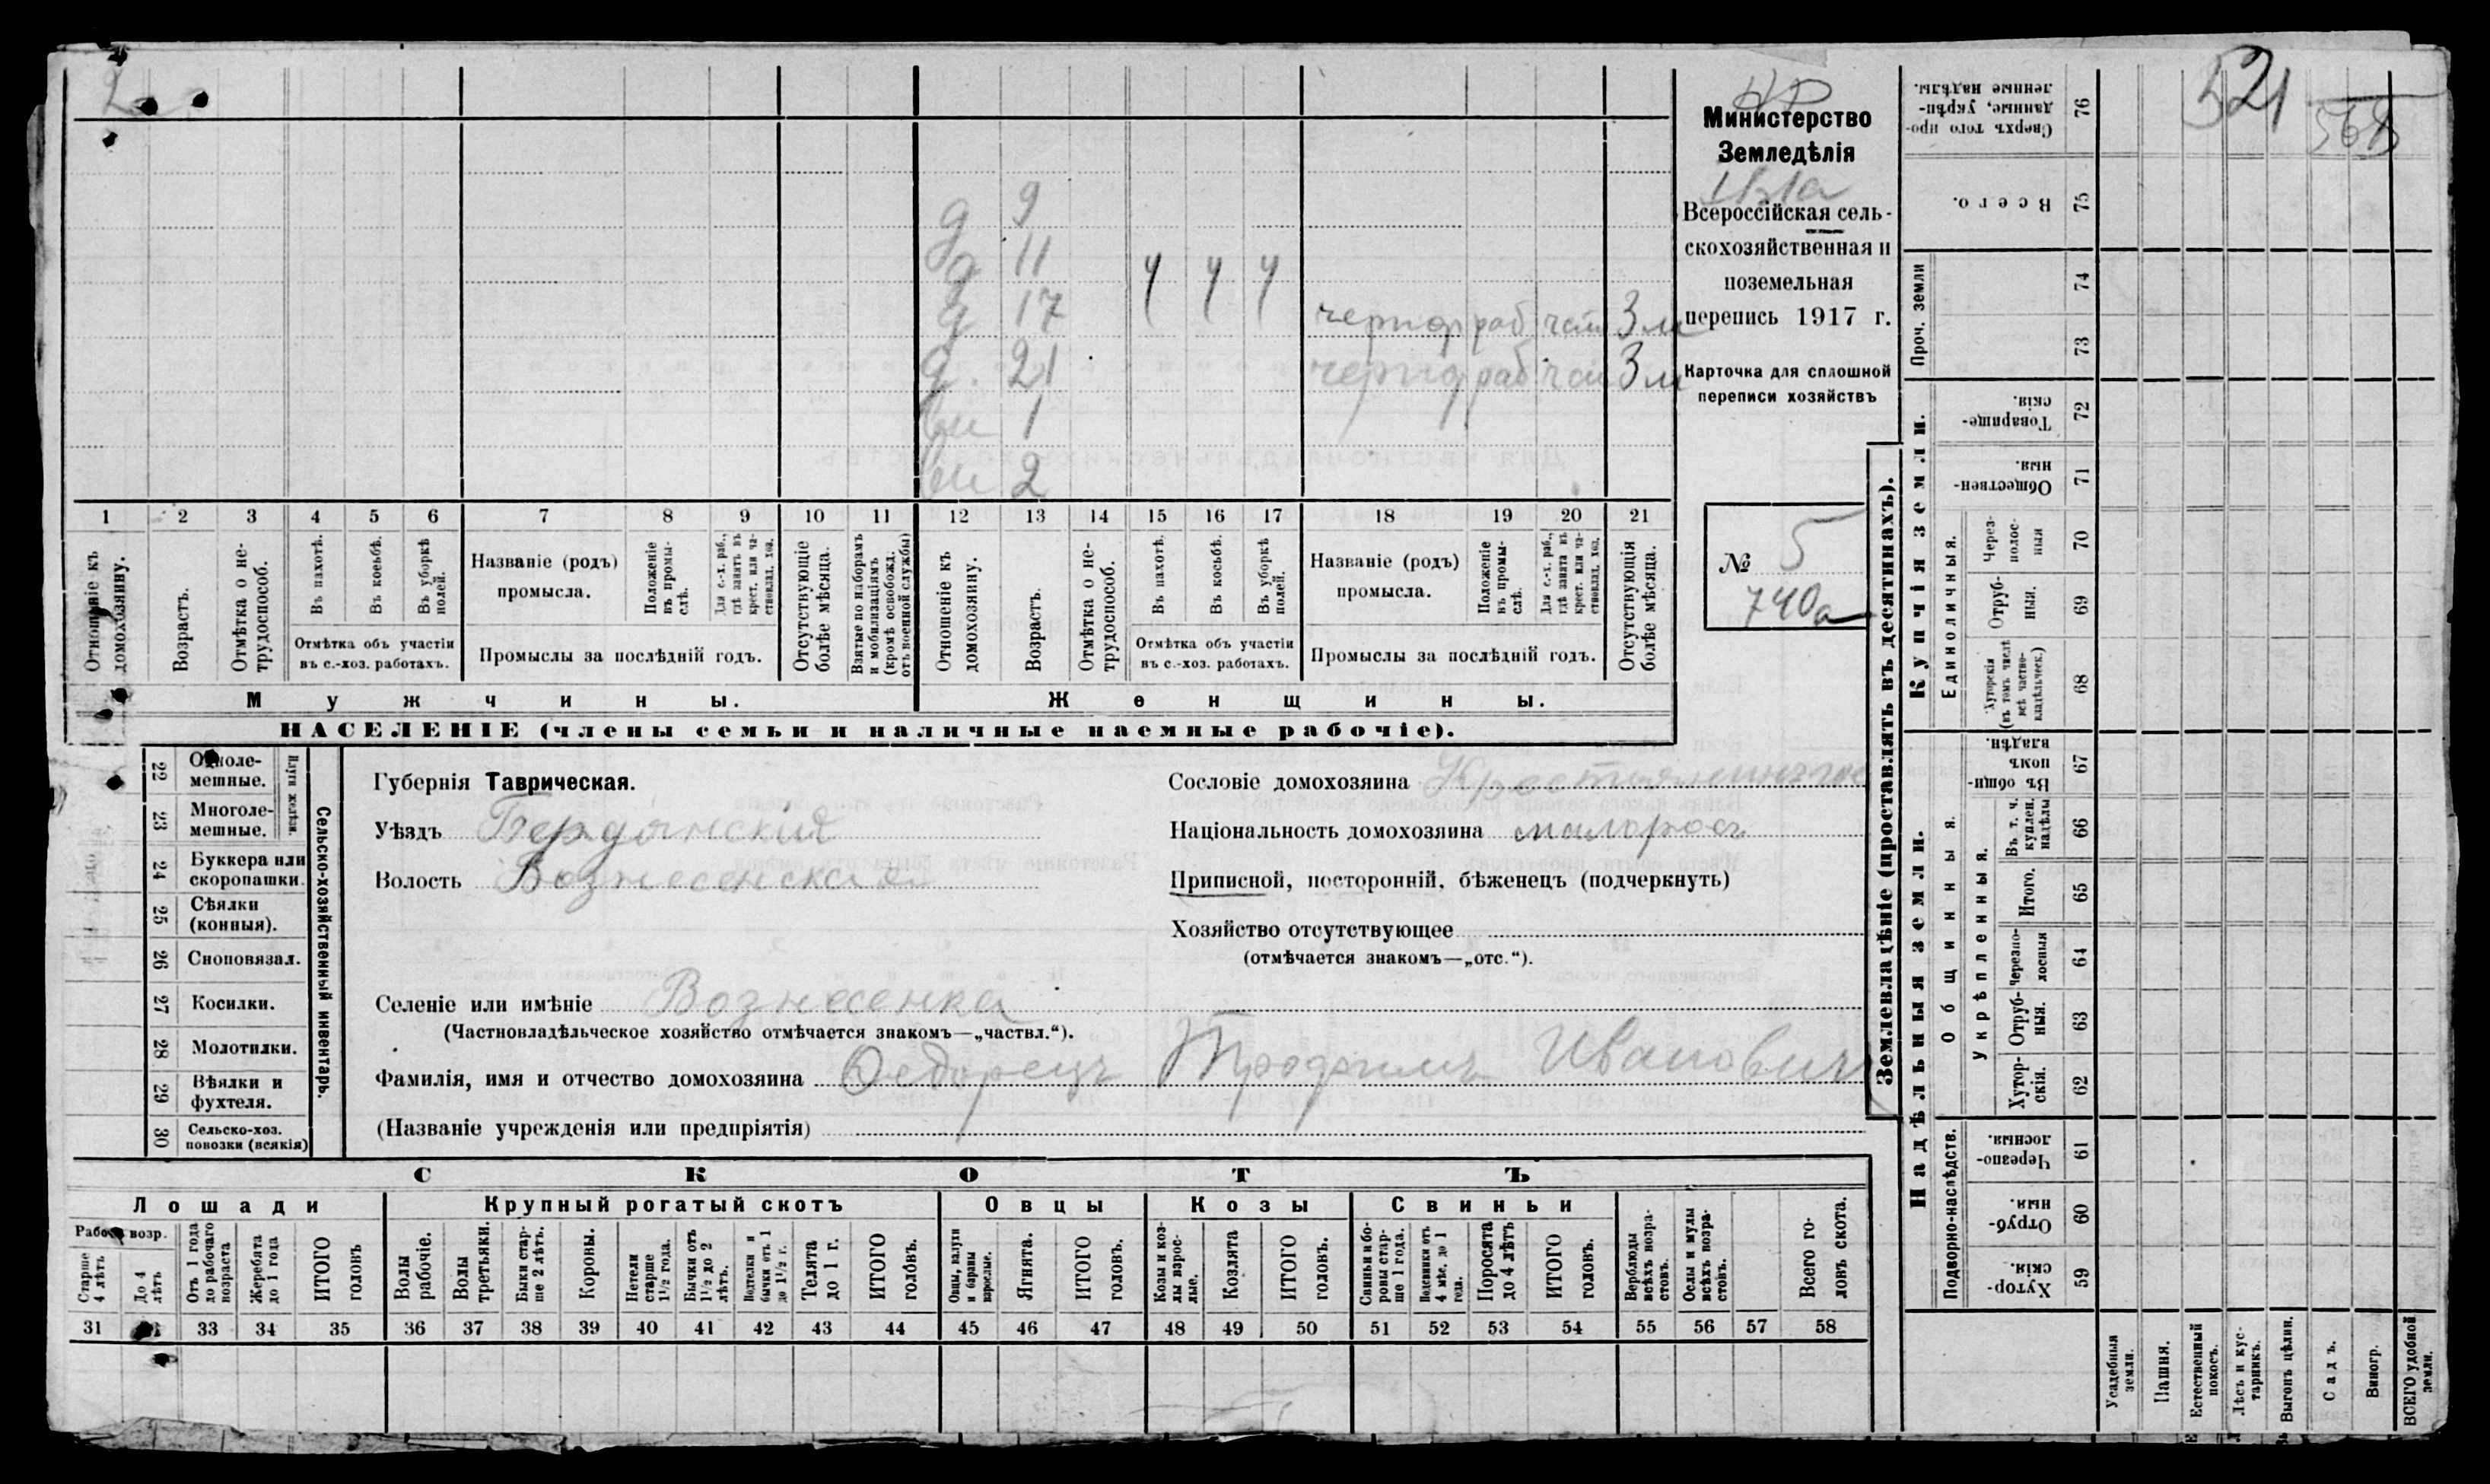 2
521
568
НР
Министерство
Земледѣлія
Всероссійская сель-
скохозяйственная и
поземельная
перепись 1917 г.
Карточка для сплошной
переписи хозяйствъ
№ 5
740а
д 9
д 11
д 17 черно раб 3 м
д. 21 черно раб 3 м
вн 1
вн 2
1 2 3 4 5 6 7 8 9 10 11 12 13 14 15 16 17 18 19 20 21
Отношеніе къ домохозяину.
Возрастъ.
Отмѣтка о не-трудоспособ.
Въ пахотѣ.
Въ косьбѣ.
Въ уборкѣ полей.
Отмѣтка объ участіи
въ с.-хоз. работахъ.
Названіе (родъ)
промысла.
Положеніе въ промы-слѣ.
Для с.-х. раб., гдѣ занятъ въ крест. или ча-стновлад. хоз.
Промыслы за послѣдній годъ.
Отсутствующіе болѣе мѣсяца.
Взятые по наборамъ и мобилизаціямъ (кромѣ освобожд. отъ военной службы)
Отношеніе къ домохозяину.
Возрастъ.
Отмѣтка о не-трудоспособ.
Въ пахотѣ.
Въ косьбѣ.
Въ уборкѣ полей.
Отмѣтка объ участіи
въ с.-хоз. работахъ.
Названіе (родъ)
промысла.
Положеніе въ промы-слѣ.
Для с.-х. раб., гдѣ занята въ крест. или ча-стновлад. хоз.
Промыслы за послѣдній годъ.
Отсутствующія болѣе мѣсяца.
Мужчины. Женщины.
НАСЕЛЕНІЕ (члены семьи и наличные наемные рабочіе).
22 Одноле-мешные.
23 Многоле-мешные.
Плуги желѣзн.
24 Буккера или скоропашки.
25 Сѣялки (конныя).
26 Сноповязал.
27 Косилки.
28 Молотилки.
29 Вѣялки и фухтеля.
30 Сельско-хоз. повозки (всякія)
Сельско-хозяйственный инвентарь.
Губернія Таврическая.
Уѣздъ Бердянскій
Волость Вознесенская
Селеніе или имѣніе Вознесенка
(Частновладѣльческое хозяйство отмѣчается знакомъ—„частвл.“).
Фамилія, имя и отчество домохозяина Федорецъ Трофимъ Ивановичъ
(Названіе учрежденія или предпріятія)
Сословіе домохозяина
Національность домохозяина малоросъ
Приписной, посторонній, бѣженецъ (подчеркнуть)
Хозяйство отсутствующее
(отмѣчается знакомъ—„отс.“).
СКОТЪ
Лошади Крупный рогатый скотъ Овцы Козы Свиньи
Рабоч. возр.
Старше 4 лѣтъ
До 4 лѣтъ
Отъ 1 года до рабочаго возраста
Жеребята до 1 года
ИТОГО головъ
Волы рабочіе.
Волы третьяки.
Быки стар-ше 2 лѣтъ.
Коровы.
Нетели старше 1½ года.
Бычки отъ 1½ до 2 лѣтъ.
Водтелки и бычки отъ 1 до 1½ г.
Телята до 1 г.
ИТОГО головъ.
Овцы, валухи и бараны взрослые.
Ягнята.
ИТОГО головъ.
Козы и коз-лы взрос-лые.
Козлята
ИТОГО головъ.
Свиньи и бо-ровы стар-ше 1 года.
Подсвинки отъ 4 мѣс. до 1 года.
Поросята до 4 лѣтъ
ИТОГО головъ.
Верблюды всѣхъ возра-стовъ.
Ослы и мулы всѣхъ возра-стовъ.
Всего го-ловъ скота.
31 33 34 35 36 37 38 39 40 41 42 43 44 45 46 47 48 49 50 51 52 53 54 55 56 57 58
Землевладѣніе (проставлять въ десятинахъ).
Надѣльныя земли. Купчія земли. Проч. земли
Подворно-наслѣдств.
Общинныя.
Укрѣпленныя.
Единоличныя.
Сверхъ того про-данные, укрѣп-ленные надѣлы. 76
Всего. 75
74
73
Товарище-скія. 72
Обществен-ныя. 71
Через-полос-ныя 70
Отруб-ныя. 69
Хуторскія (въ томъ числѣ всѣ частно-владѣльческ.) 68
Въ общи-номъ владѣн. 67
Въ т. ч. куплен. надѣлы 66
Итого. 65
Черезпо-лосныя 64
Отруб-ныя. 63
Хутор-скія. 62
Черезпо-лосныя. 61
Отруб-ныя. 60
Хутор-скія. 59
Усадебныя земли.
Пашня.
Естественный покосъ.
Лѣсъ и кус-тарникъ.
Выгонъ цѣлин.
Садъ.
Виногр.
ВСЕГО удобной земли.